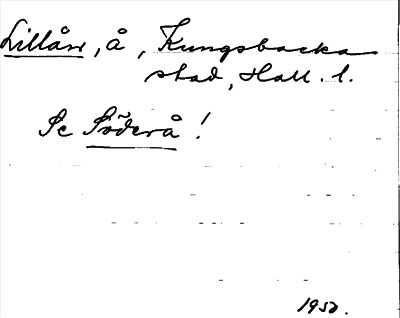 Lillån, å, Kungsbacka
stad, Hall. l.
Se Söderå!
1950.